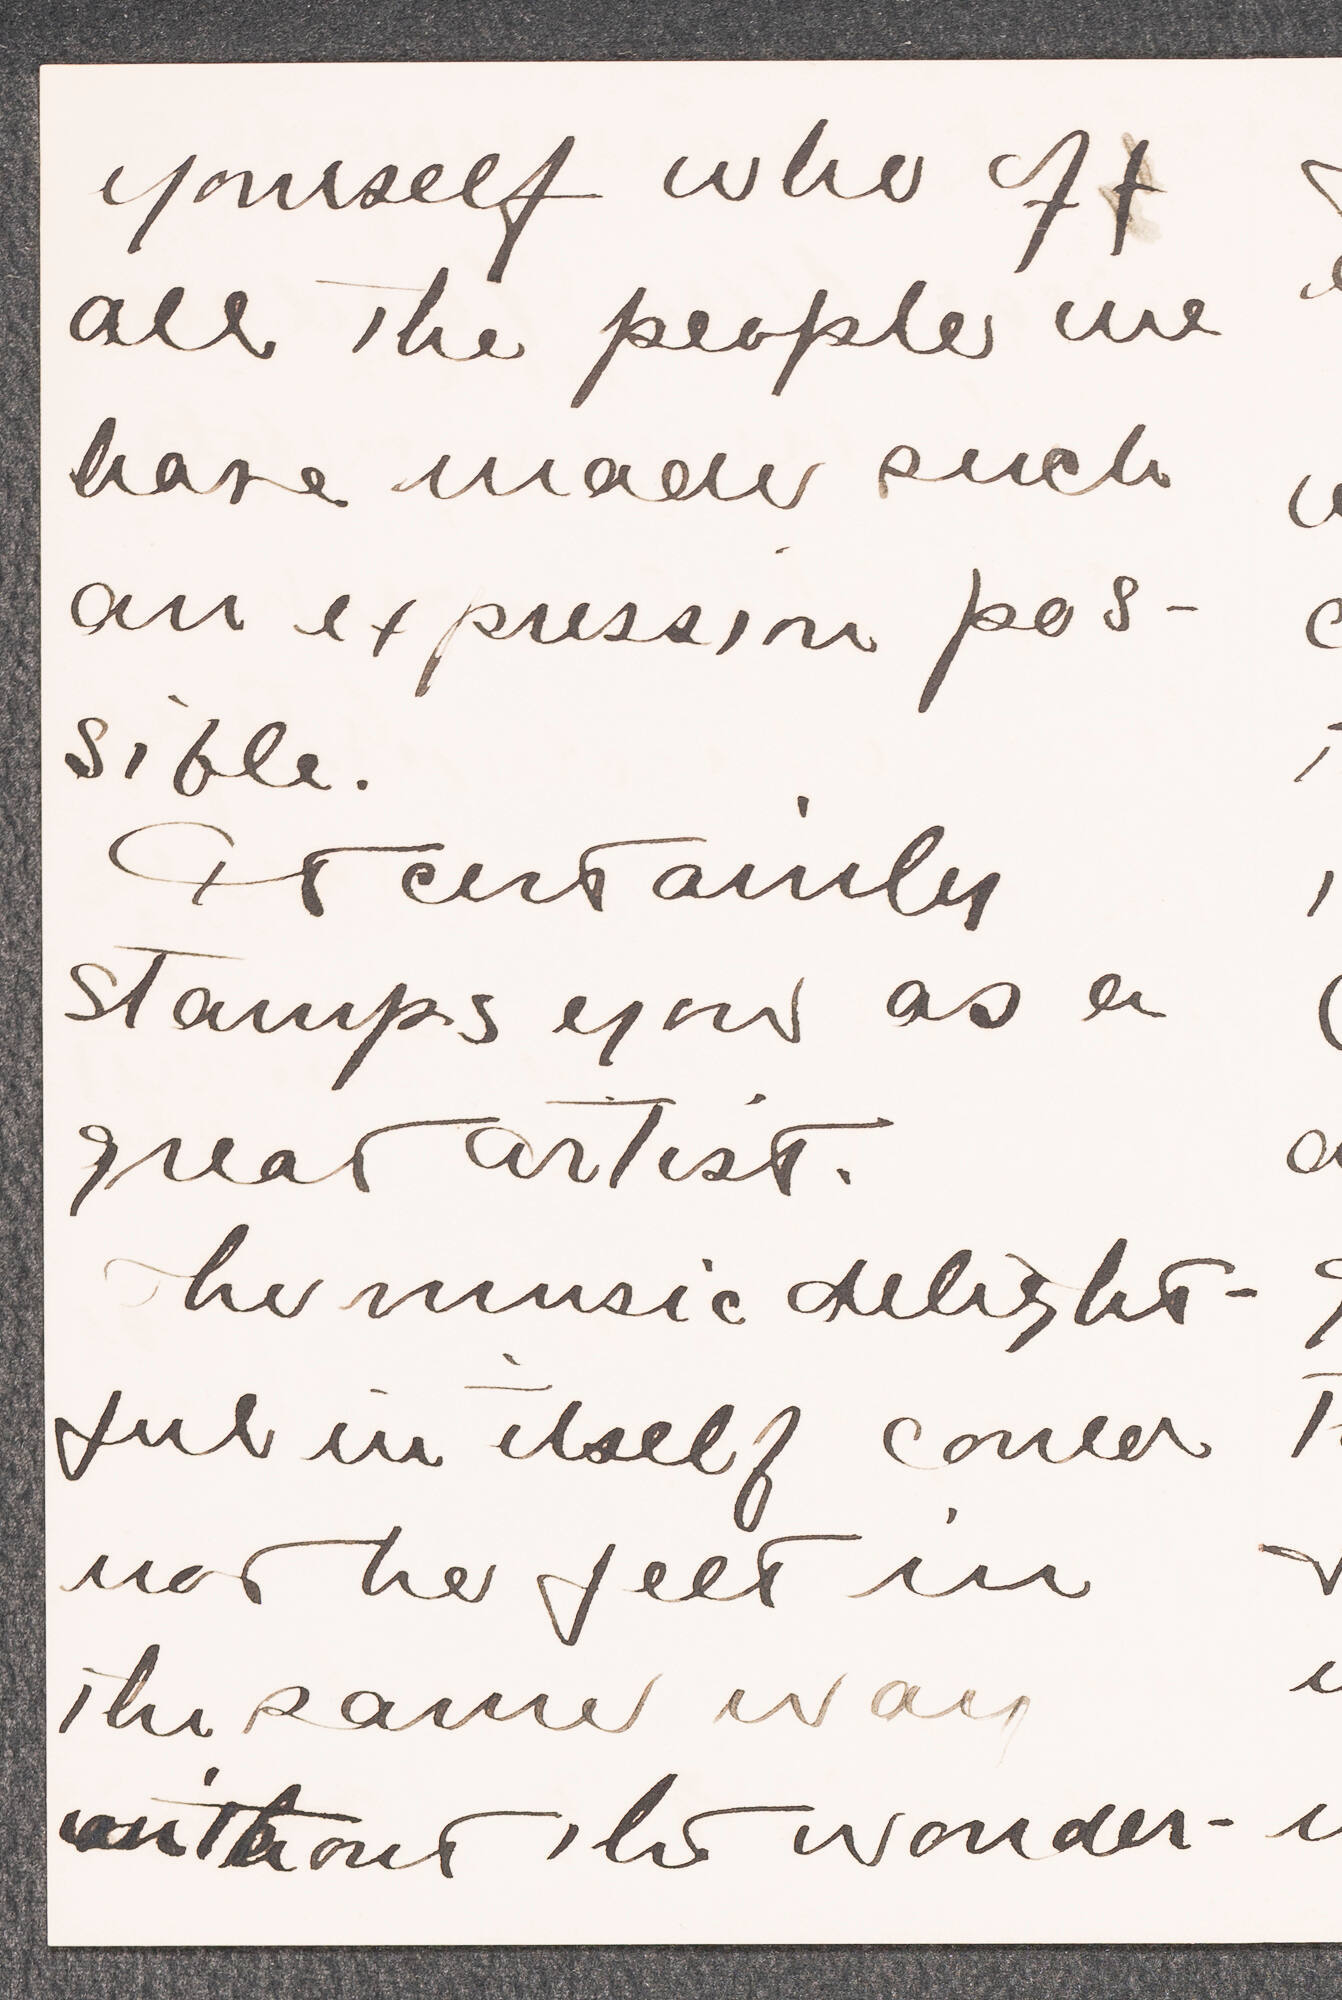 yourself who of
all the people we
have made such
an expression pos-
sible.
It certainly
stamps you as a
great artist.
The music delight-
ful in itself could
not be felt in
the same way
without the wonder-